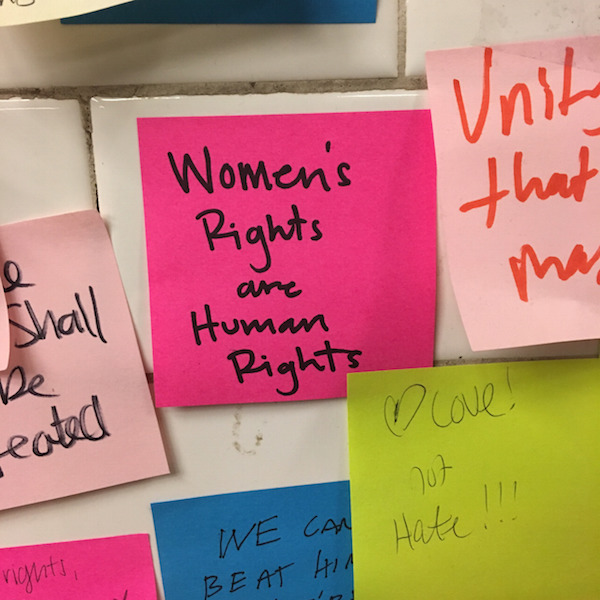 Women's
Rights
are
Human
Rights
Unity
that
Shall
be
♡ Love!
not
Hate!!!
WE CAN
BEAT HIM
rights,